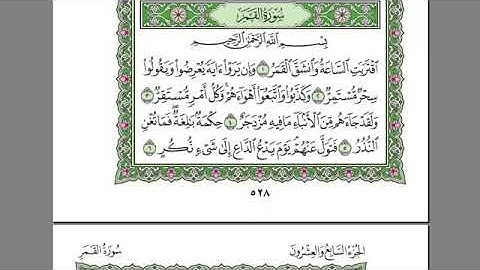 سُورَةُ القَمَرِ
بِسْمِ اللَّهِ الرَّحْمَٰنِ الرَّحِيمِ
ٱقْتَرَبَتِ ٱلسَّاعَةُ وَٱنشَقَّ ٱلْقَمَرُ ١ وَإِن يَرَوْا۟ ءَايَةً يُعْرِضُوا۟ وَيَقُولُوا۟
سِحْرٌ مُّسْتَمِرٌّ ٢ وَكَذَّبُوا۟ وَٱتَّبَعُوٓا۟ أَهْوَآءَهُمْ ۚ وَكُلُّ أَمْرٍ مُّسْتَقِرٌّ ٣
وَلَقَدْ جَآءَهُم مِّنَ ٱلْأَنۢبَآءِ مَا فِيهِ مُزْدَجَرٌ ٤ حِكْمَةٌۢ بَٰلِغَةٌ ۖ فَمَا تُغْنِ
ٱلنُّذُرُ ٥ فَتَوَلَّ عَنْهُمْ ۘ يَوْمَ يَدْعُ ٱلدَّاعِ إِلَىٰ شَىْءٍ نُّكُرٍ ٦
٥٢٨
الجُزءُ السَّابِعُ وَالعِشْرُونَ سُورَةُ القَمَرِ